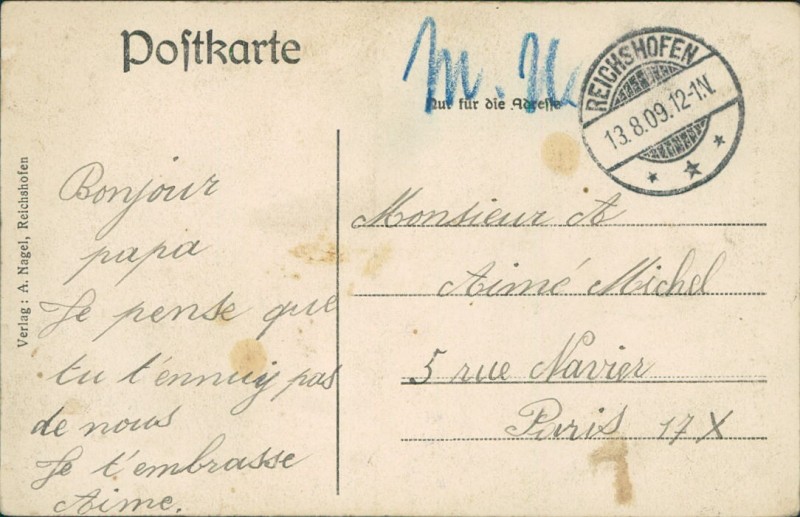 Postkarte
Nur für die Adresse
REICHSHOFEN
13.8.09.12-1N.
Verlag: A. Nagel, Reichshofen
Bonjour
papa
Je pense que
tu t'ennuiy pas
de nous
Je t'embrasse
Aime.
Monsieur A
Aimé Michel
5 rue Navier
Paris 17 X